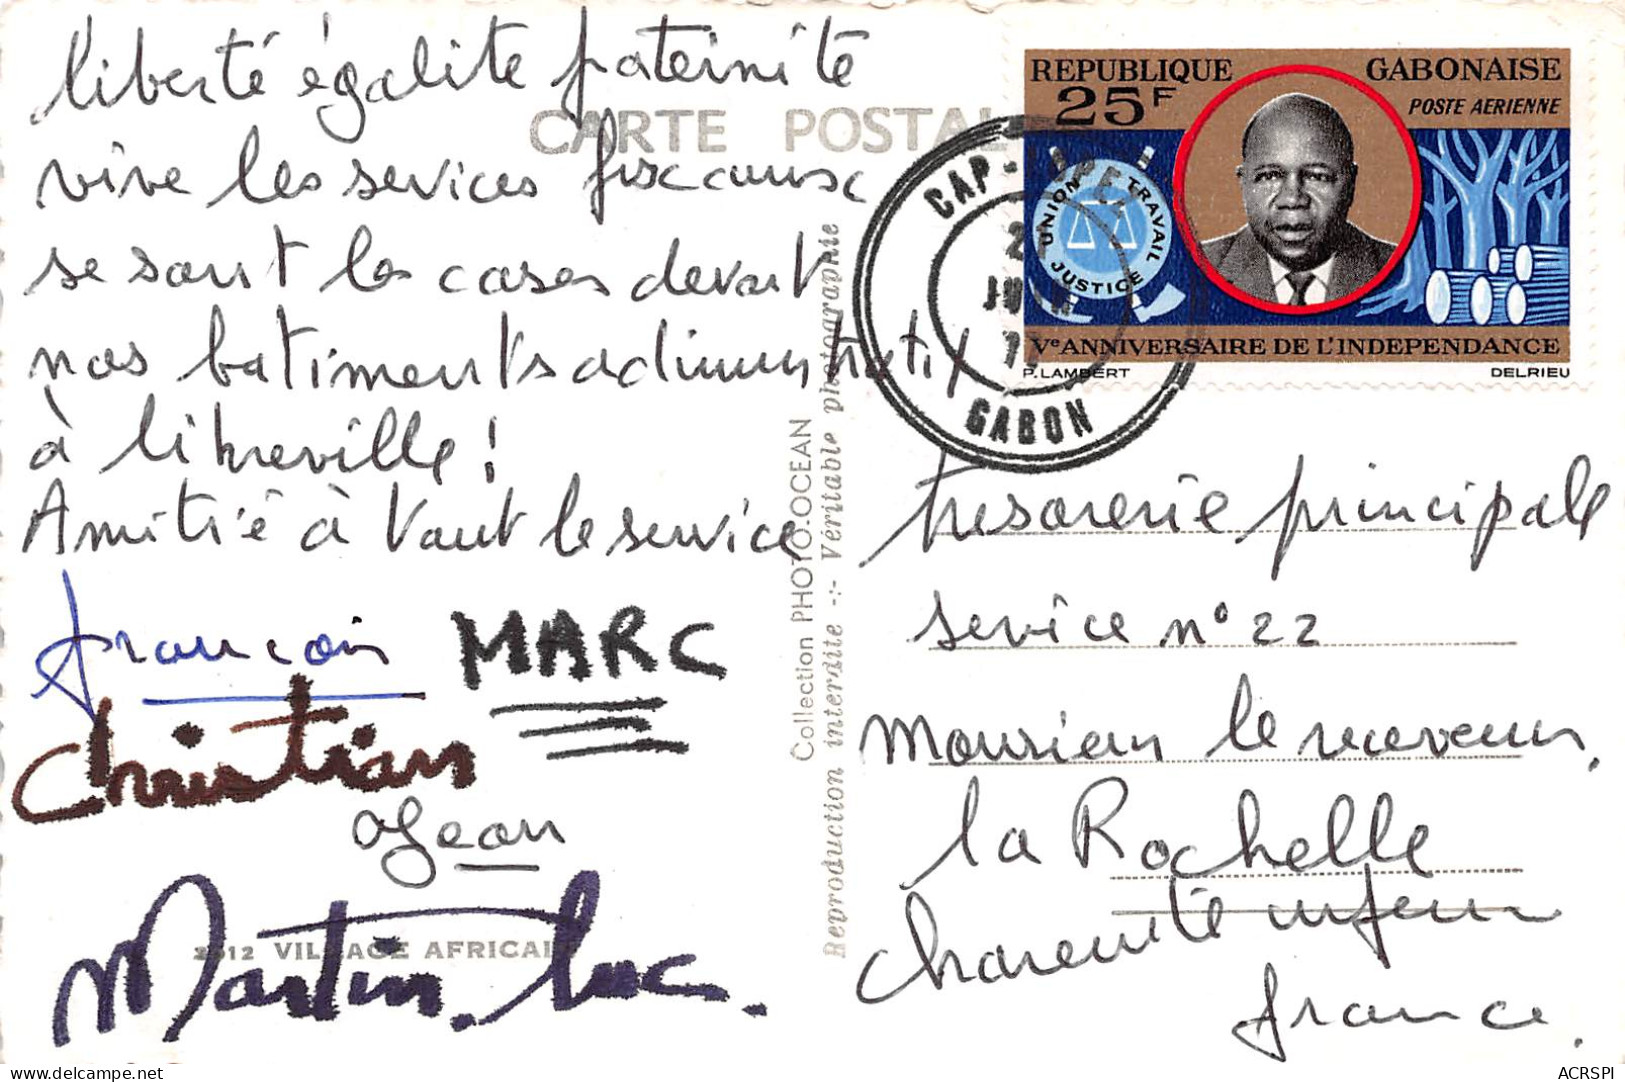 liberté égalite fraternité
vive les services fiscaux
se sont les cases devant
nos batiments administratif
à libreville !
Amitié à tout le service
françois MARC
Christian
Jean
Martin. Luc.
2512 VILLAGE AFRICAIN
CARTE POSTALE
Collection PHOTO-OCEAN
Reproduction interdite -:- Véritable photographie
REPUBLIQUE GABONAISE
25F POSTE AERIENNE
UNION TRAVAIL JUSTICE
Ve ANNIVERSAIRE DE L'INDEPENDANCE
P. LAMBERT DELRIEU
CAP-LOPEZ
GABON
tresorerie principale
service n° 22
Monsieur le receveur.
la Rochelle
charente infeure
france.
ACRSPI